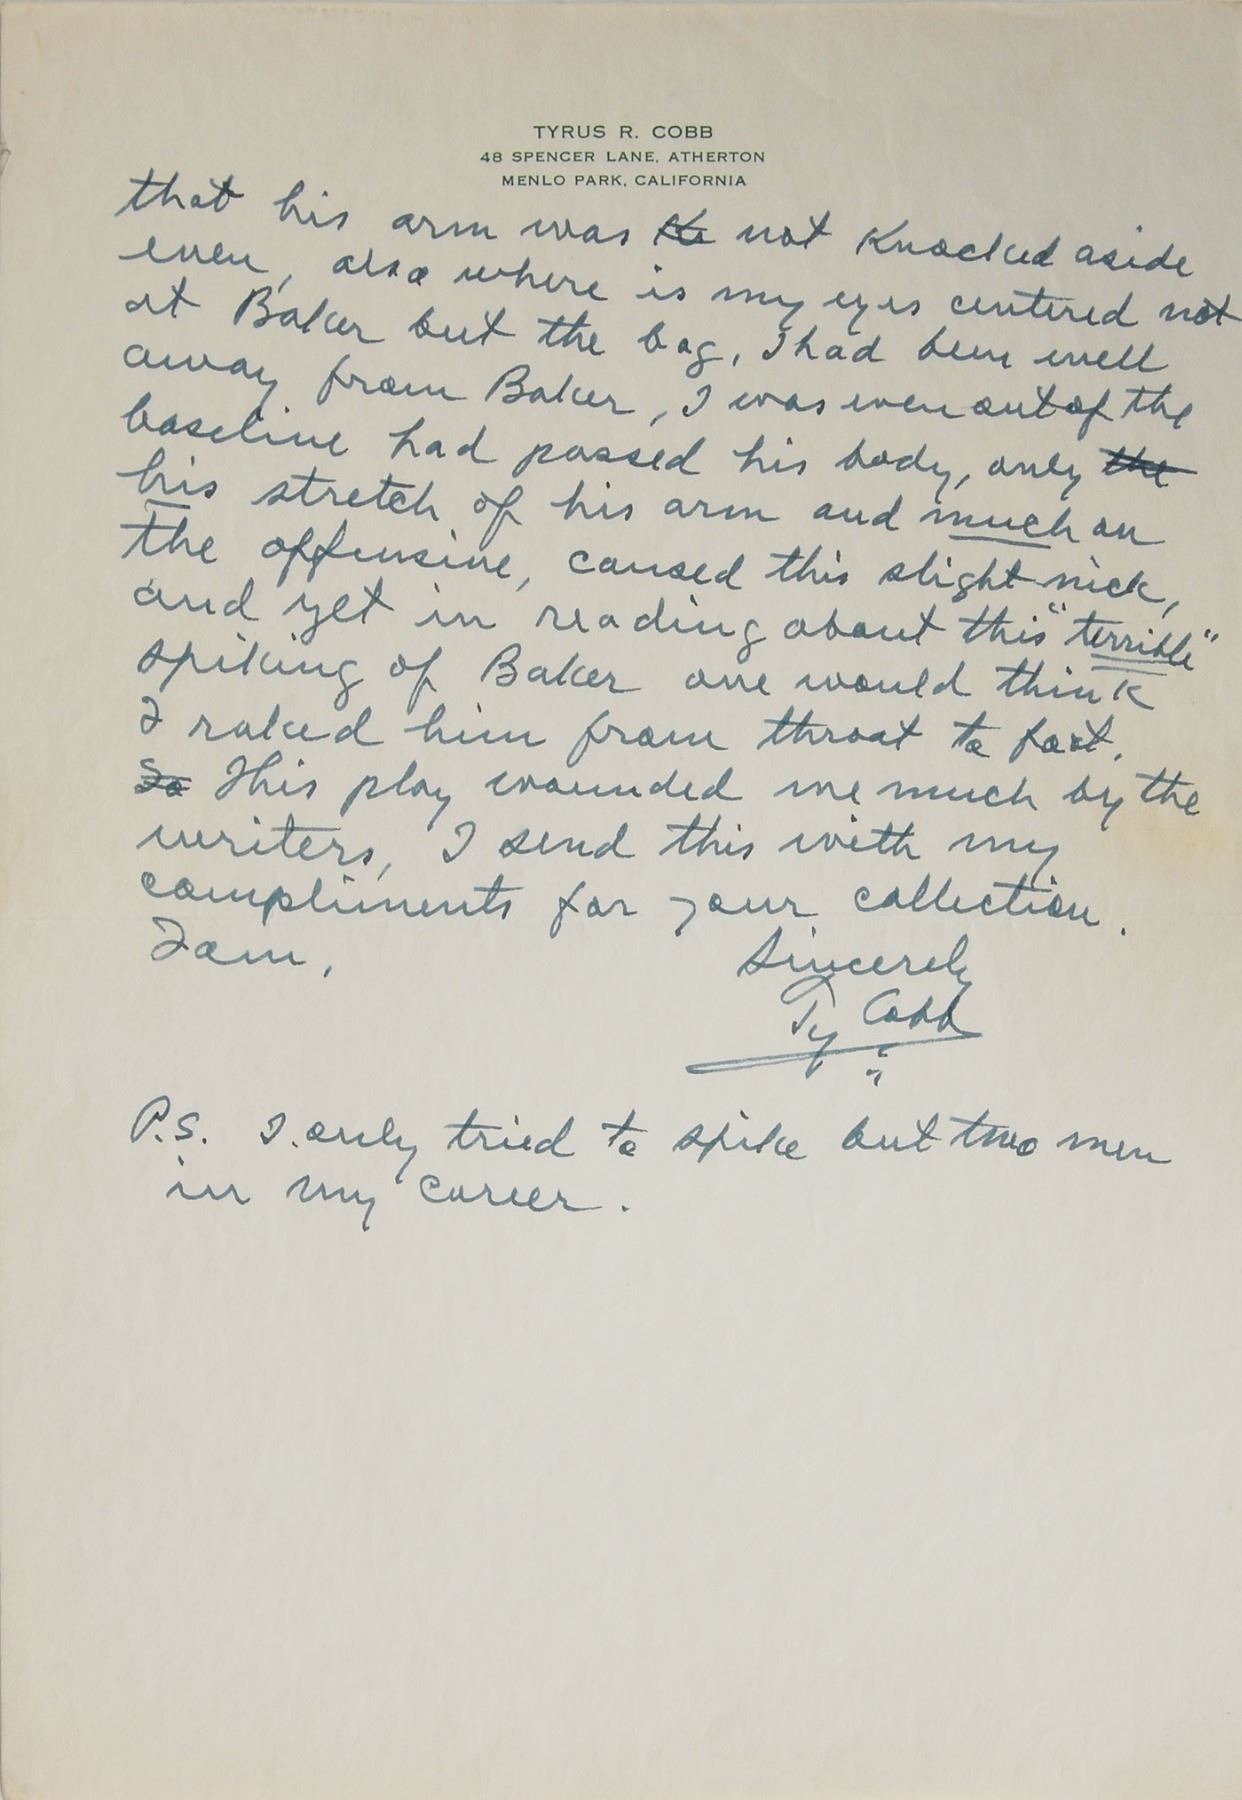 TYRUS R. COBB
48 SPENCER LANE, ATHERTON
MENLO PARK, CALIFORNIA
that his arm was ~~Kn~~ not Knocked aside
even, also where is my eyes centered not
at Baker but the bag, I had been well
away from Baker, I was even out of the
baseline had passed his body, only ~~the~~
his stretch of his arm and much on
the offensive, caused this slight nick,
and yet in reading about this "terrible"
spiking of Baker one would think
I raked him from throat to foot.
~~So~~ This play wounded me much by the
writers, I send this with my
compliments for your collection.
I am,
Sincerely
Ty Cobb
P.S. I only tried to spike but two men
in my career.